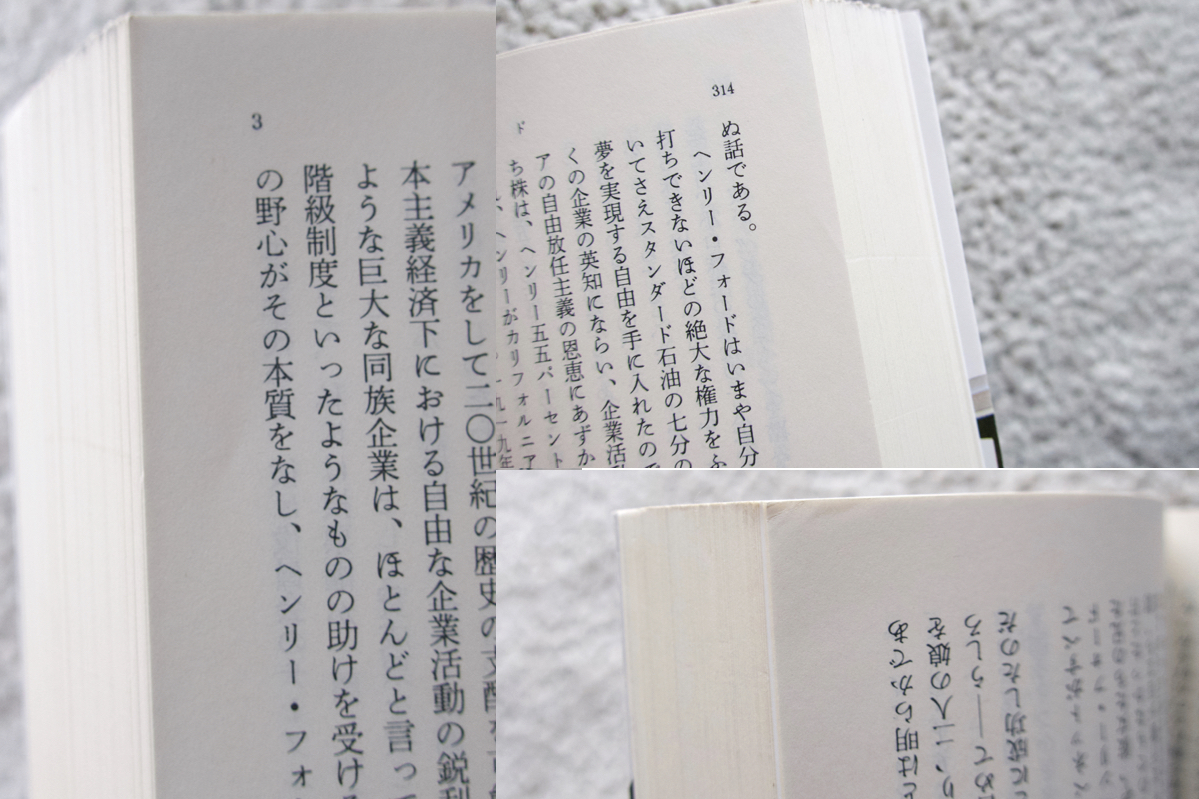 3
アメリカをして二〇世紀の歴史の
本主義経済下における自由な企業活動の鋭利
ような巨大な同族企業は、ほとんどと言って
階級制度といったようなものの助けを受け
の野心がその本質をなし、ヘンリー・フォ
314
ぬ話である。
ヘンリー・フォードはいまや自分
打ちできないほどの絶大な権力をふ
いてさえスタンダード石油の七分の
夢を実現する自由を手に入れたので
くの企業の英知にならい、企業活
アの自由放任主義の恩恵にあずか
ち株は、ヘンリー五五パーセント
ヘンリーがカリフォルニア
一九一九年
ド
に成功したのだ
めて――うしろ
り、二人の娘を
とは明らかであ